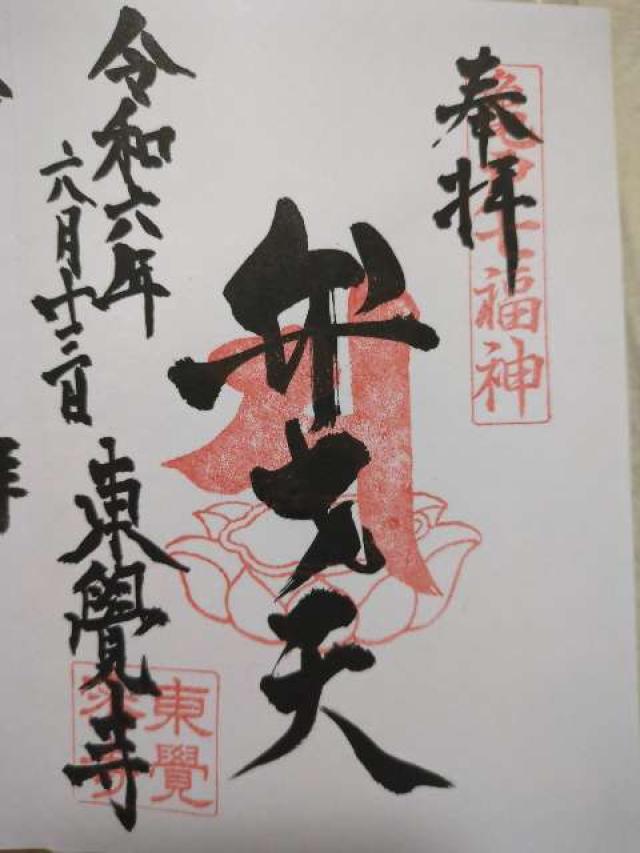 奉拝
七福神
弁才天
令和六年
六月十三日
東覺寺
東覺